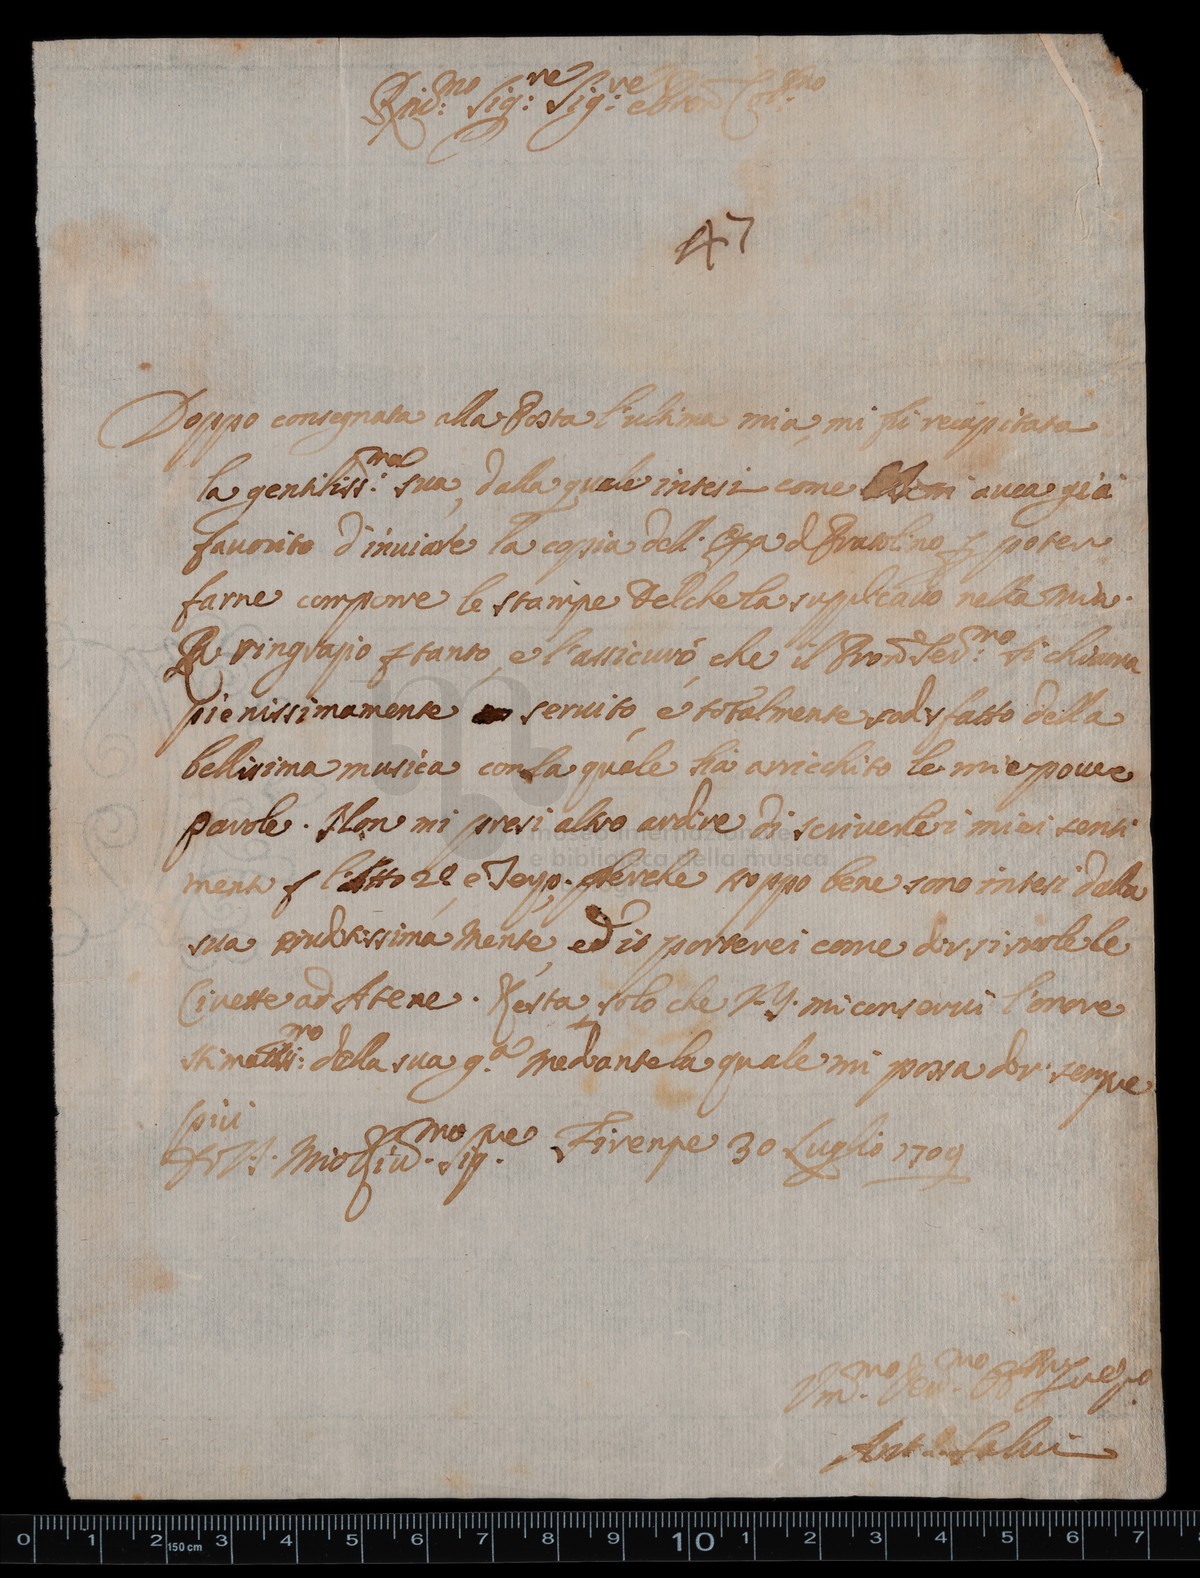 Riv:mo Sig:re Sig:re e Pron Col:mo
47
Doppo consegnata alla Posta l'ultima mia, mi fù recapitata
la gentiliss:ma sua, dalla quale intesi come avea già
favorito d'inviare la copia dell. Opa d Pratolino p poter
farne comporre le stampe del che la supplicavo nella mia.
La ringrazio p tanto, e l'assicuro, che il Pron Ser:mo si chiama
pienissimamente servito, e totalmente sodisfatto della
bellisima musica con la quale hà arricchito le mie povere
parole. Non mi presi altro ardire di scriverle i miei senti
menti p l'Atto 2º e Terzo. perche troppo bene sono intesi dalla
sua mente, ed io porterei come dir si suole le
Civette ad Atene. Resta solo che V.S. mi conservi l'onore
stimatiss:mo della sua g.a mediante la quale mi possa dir sempre
più
Di V.S. Mio Riv.mo Sig.re Firenze 30 Luglio 1709
Um.mo Dev.mo Obb
Ant.o Salvi
museo internazionale
e biblioteca della musica
0 1 2 3 4 5 6 7 8 9 10 1 2 3 4 5 6 7
150 cm